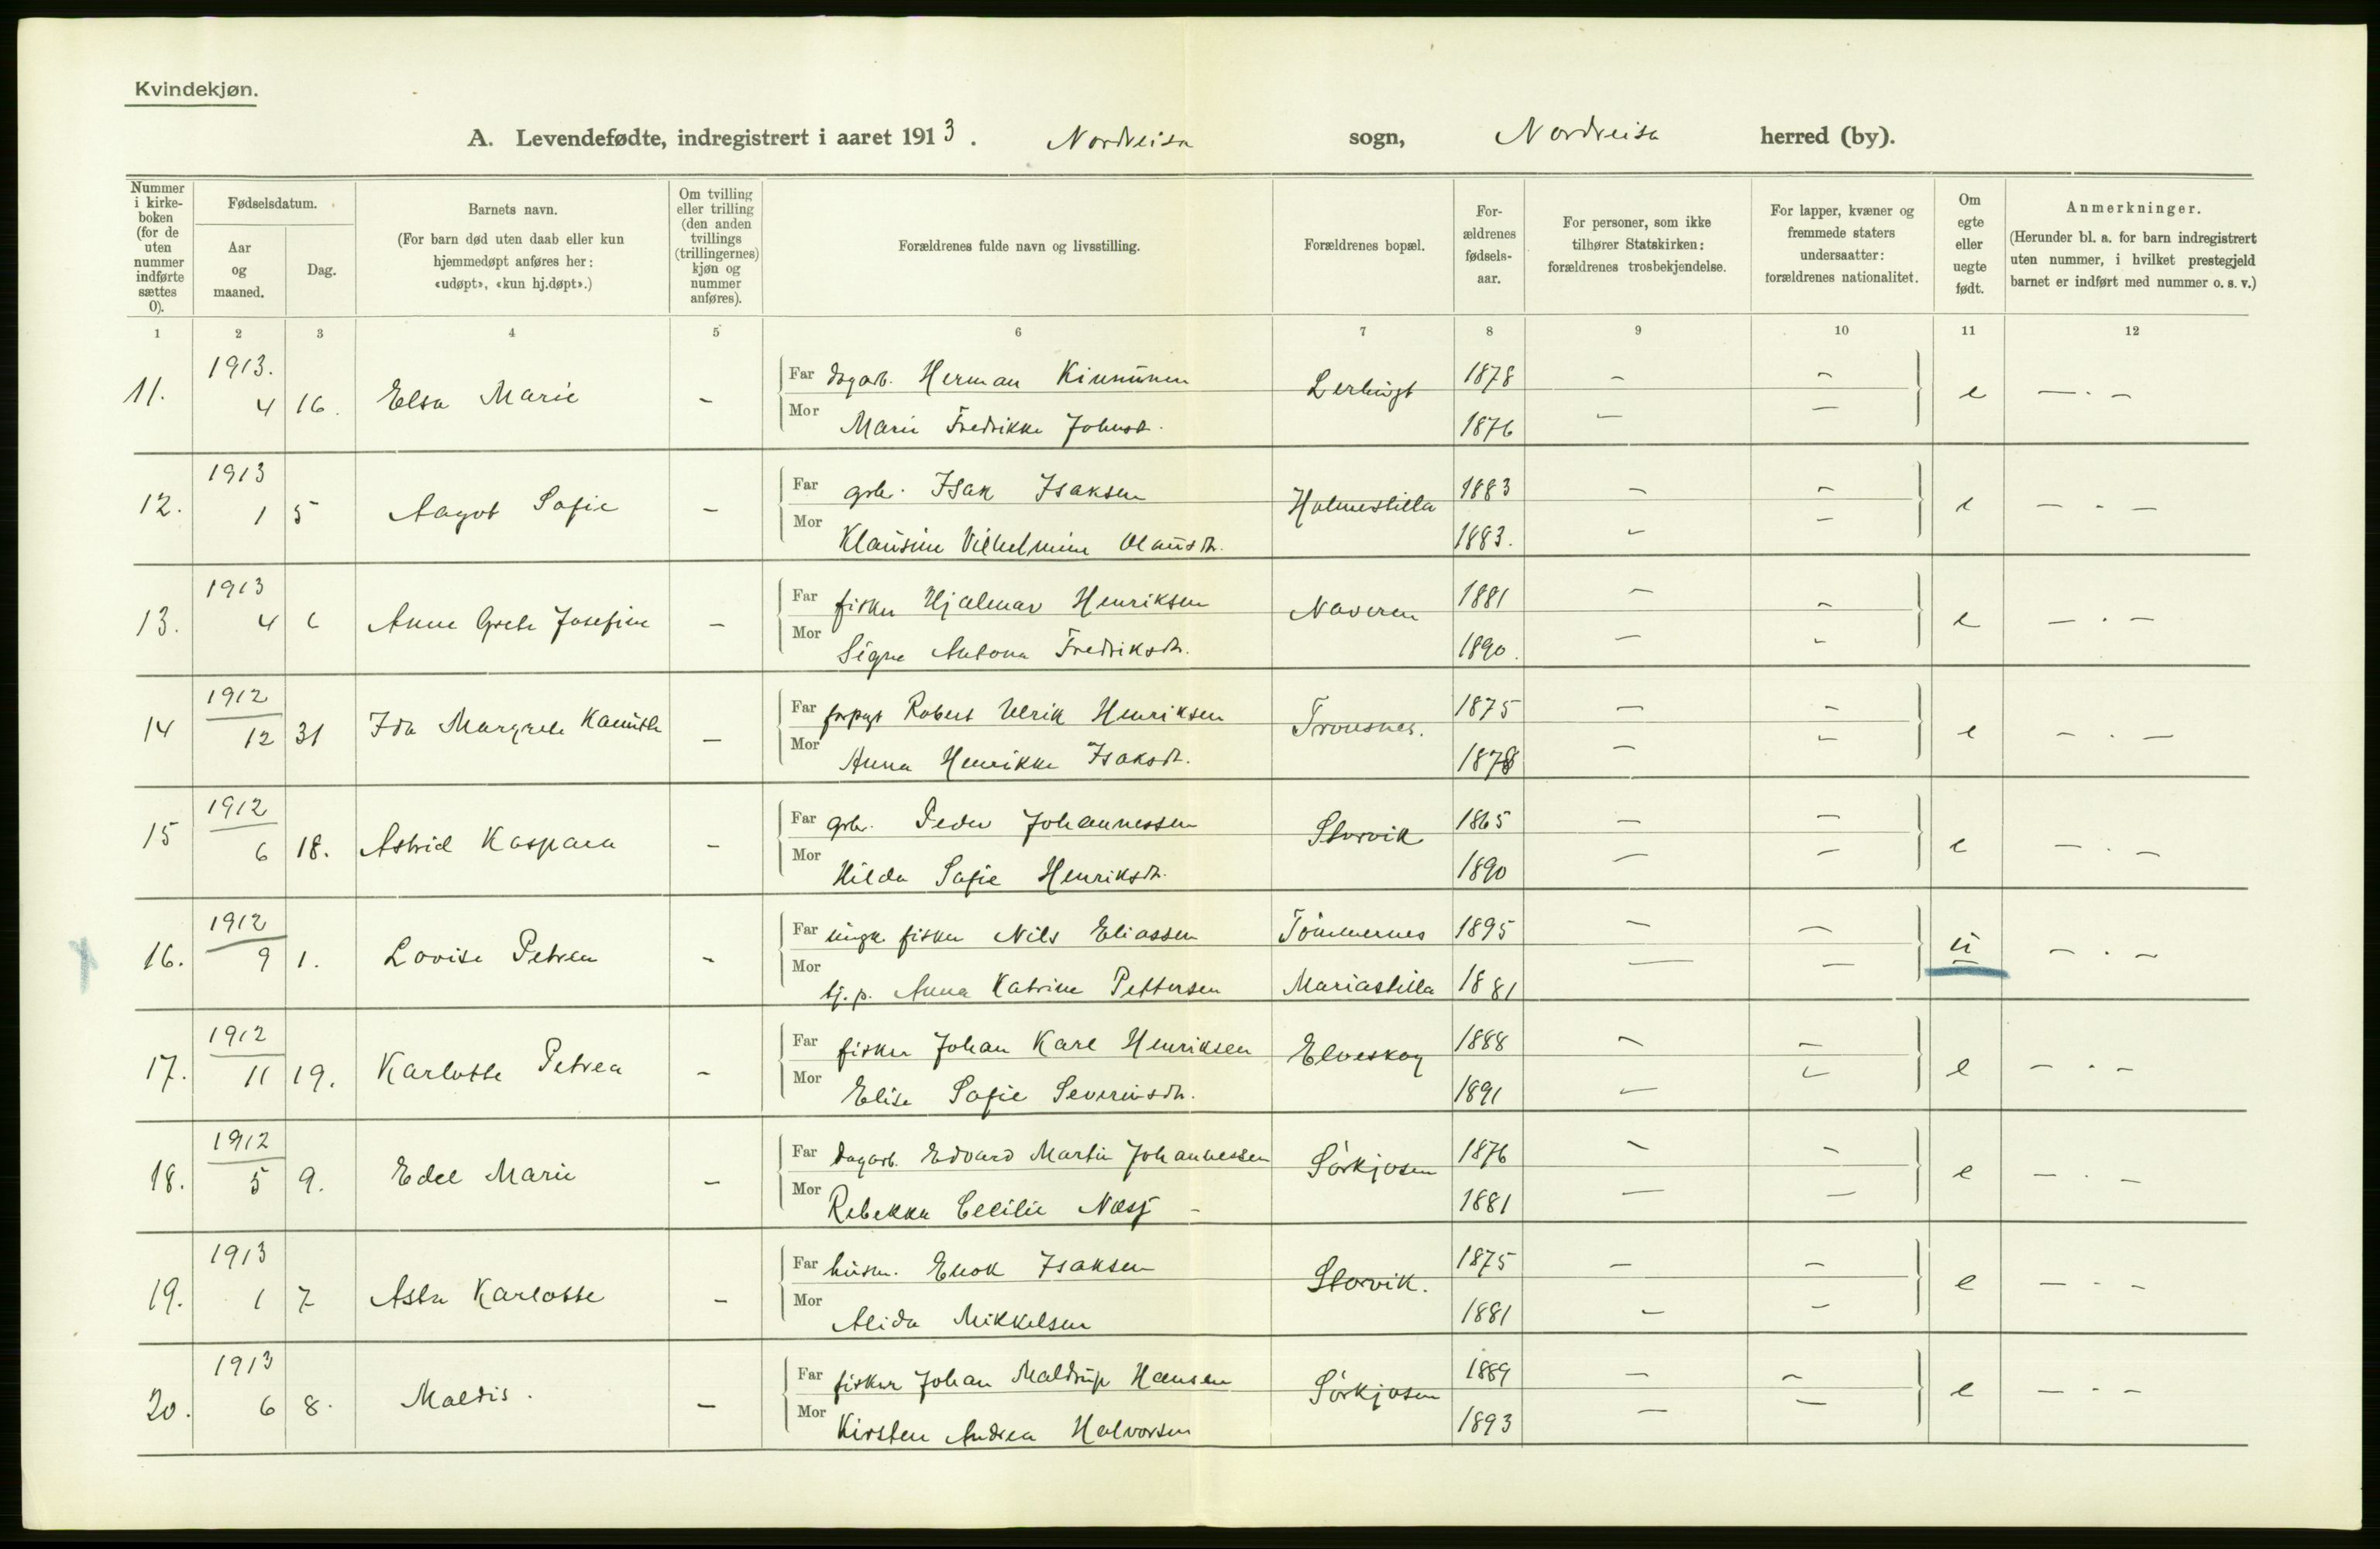 Kvindekjøn.
A. Levendefødte, indregistrert i aaret 1913. Nordreisa sogn, Nordreisa herred (by).
Nummer i kirkeboken (for de uten nummer indførte sættes 0).
Fødselsdatum.
Aar og maaned.
Dag.
Barnets navn.
(For barn død uten daab eller kun hjemmedøpt anføres her: «udøpt», «kun hj.døpt».)
Om tvilling eller trilling (den anden tvillings (trillingernes) kjøn og nummer anføres).
Forældrenes fulde navn og livsstilling.
Forældrenes bopæl.
Forældrenes fødselsaar.
For personer, som ikke tilhører Statskirken: forældrenes trosbekjendelse.
For lapper, kvæner og fremmede staters undersaatter: forældrenes nationalitet.
Om egte eller uegte født.
Anmerkninger.
(Herunder bl. a. for barn indregistrert uten nummer, i hvilket prestegjeld barnet er indført med nummer o. s. v.)
1 2 3 4 5 6 7 8 9 10 11 12
11. 1913. 4 16. Elsa Marie - Far dagarb. Herman Kinnunen 1878 - - e - . -
Mor Marie Fredrikke Johnsd. 1876 - -
12. 1913 1 5 Aagot Sofie - Far grbr. Isak Isaksen Holmestilla 1883 - - e - . -
Mor Klausine Vilhelmine Olausdtr. 1883. - -
13. 1913 4 6 Anne Grete Josefine - Far fisker Hjalmar Henriksen Naveren 1881 - - e - . -
Mor Signe Antona Fredriksdtr. 1890. - -
14 1912 12 31 Ida Margrete - Far forpagt Robert Ulrik Henriksen 1875 - - e - . -
Mor Anna Henrikke Isaksdtr. 1878 - -
15 1912 6 18. Astrid Kaspara - Far grbr. Peder Johannessen Storvik 1865 - - e - . -
Mor Hilda Sofie Henriksdtr. 1890 - -
16. 1912 9 1. Lovise Petrea - Far ungk. fisker Nils Eliassen Tömmernes 1895 - - u - . -
Mor tj. p. Anna Katrine Pettersen Mariastilla 1881 - -
17. 1912 11 19. Karlotte Petrea - Far fisker Johan Karl Henriksen Elveskog 1888 - - e - . -
Mor Elise Sofie Severinsdtr. 1891 - -
18. 1912 5 9. Edel Marie - Far dagarb. Edvard Martin Johannessen Sörkjosen 1876 - - e - . -
Mor Rebekka Cecilie 1881 - -
19. 1913 1 7 Asta Karlotte - Far husm. Enok Isaksen Storvik. 1875 - - e - . -
Mor Alida Mikkelsen 1881 - -
20. 1913 6 8. Maldis. - Far fisker Johan Maldrup Hansen Sörkjosen 1889 - - e - . -
Mor Kirsten Andrea Halvorsen 1893 - -